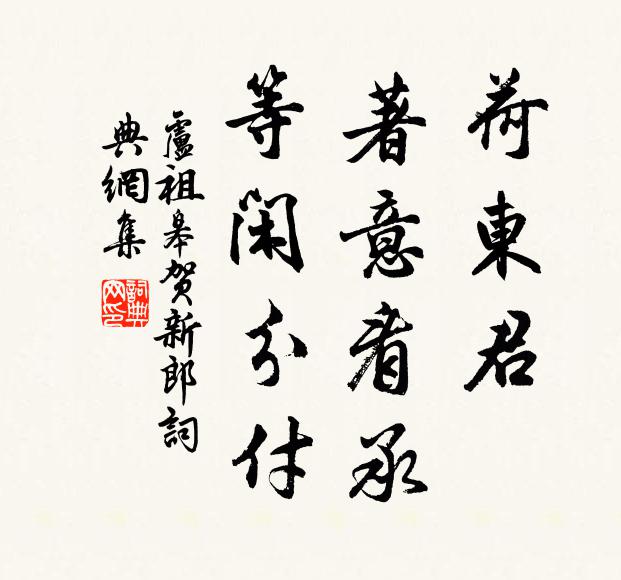 荷東君
著意看承
等閑分付
盧祖皋賀新郎詞
典網集
詞典網印